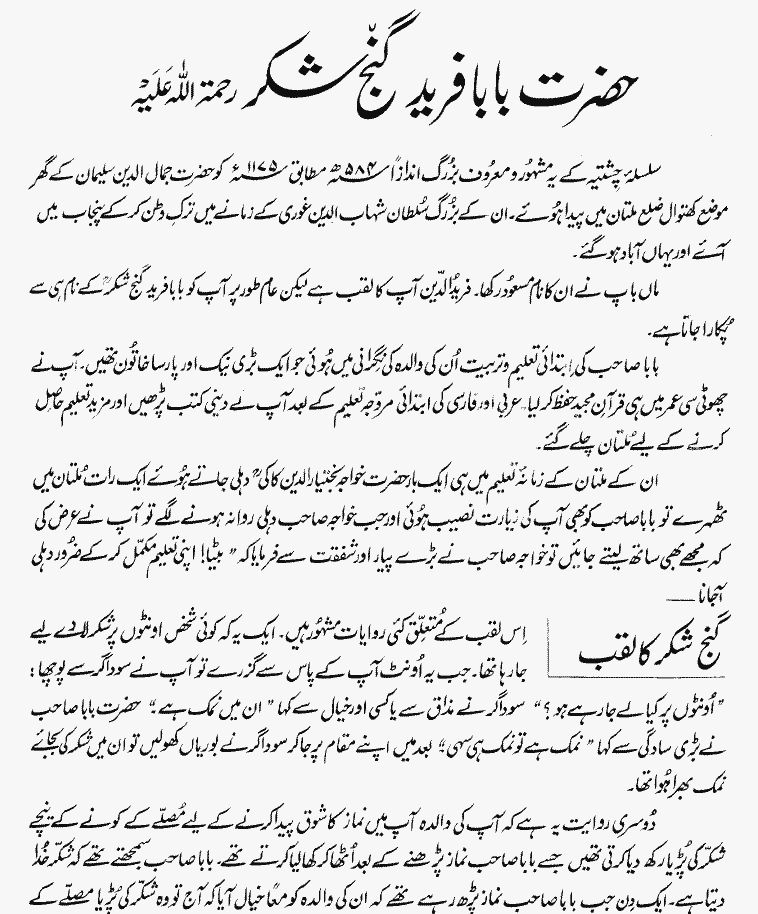 حضرت بابا فرید گنج شکر رحمۃ اللہ علیہ
سلسلۂ چشتیہ کے یہ مشہور و معروف بزرگ اندازاً ۵۸۴ھ مطابق ۱۱۷۵ء کو حضرت جمال الدین سلیمان کے گھر
موضع کھتوال ضلع ملتان میں پیدا ہوئے۔ ان کے بزرگ سُلطان شہاب الدین غوری کے زمانے میں ترکِ وطن کر کے پنجاب میں
آئے اور یہاں آباد ہو گئے۔
ماں باپ نے ان کا نام مسعود رکھا۔ فریدُ الدّین آپ کا لقب ہے لیکن عام طور پر آپ کو بابا فرید گنج شکرؒ کے نام ہی سے
پُکارا جاتا ہے۔
بابا صاحب کی اِبتدائی تعلیم و تربیت اُن کی والدہ کی نگرانی میں ہُوئی جو ایک بڑی نیک اور پارسا خاتُون تھیں۔ آپ نے
چھوٹی سی عمر میں ہی قرآنِ مجید حفظ کر لیا۔ عربی اور فارسی کی ابتدائی مروّجہ تعلیم کے بعد آپ نے دینی کتب پڑھیں اور مزید تعلیم حاصِل
کرنے کے لیے مُلتان چلے گئے۔
ان کے ملتان کے زمانۂ تعلیم میں ہی ایک بار حضرت خواجہ بختیار الدین کاکیؒ دہلی جاتے ہُوئے ایک رات مُلتان میں
ٹھہرے تو بابا صاحب کو بھی آپ کی زیارت نصیب ہُوئی اور جب خواجہ صاحب دہلی روانہ ہونے لگے تو آپ نے عرض کی
کہ مجھے بھی ساتھ لیتے جائیں تو خواجہ صاحب نے بڑے پیار اور شفقت سے فرمایا کہ "بیٹا! اپنی تعلیم مکمّل کر کے ضرُور دہلی
آجانا ــــ
گنج شکر کا لقب
اِس لقب کے مُتعلّق کئی روایات مشہُور ہیں۔ ایک یہ کہ کوئی شخص اونٹوں پر شکر لادے لیے
جا رہا تھا۔ جب یہ اُونٹ آپ کے پاس سے گزرے تو آپ نے سوداگر سے پوچھا:
"اُونٹوں پر کیا لے جا رہے ہو؟" سوداگر نے مذاق سے یا کسی اور خیال سے کہا "ان میں نمک ہے" حضرت بابا صاحب
نے بڑی سادگی سے کہا "نمک ہے تو نمک ہی سہی" بعد میں اپنے مقام پر جا کر سوداگر نے بوریاں کھولیں تو ان میں شکر کی بجائے
نمک بھرا ہُوا تھا۔
دُوسری روایت یہ ہے کہ آپ کی والدہ آپ میں نماز کا شوق پیدا کرنے کے لیے مُصلّے کے کونے کے نیچے
شکّر کی پُڑیا رکھ دیا کرتی تھیں جسے بابا صاحب نماز پڑھنے کے بعد اُٹھا کر کھا لیا کرتے تھے۔ بابا صاحب سمجھتے تھے کہ شکّر خُدا
دیتا ہے۔ ایک دِن جب بابا صاحب نماز پڑھ رہے تھے کہ ان کی والدہ کو معاً خیال آیا کہ آج تو وہ شکّر کی پُڑیا مصلّے کے